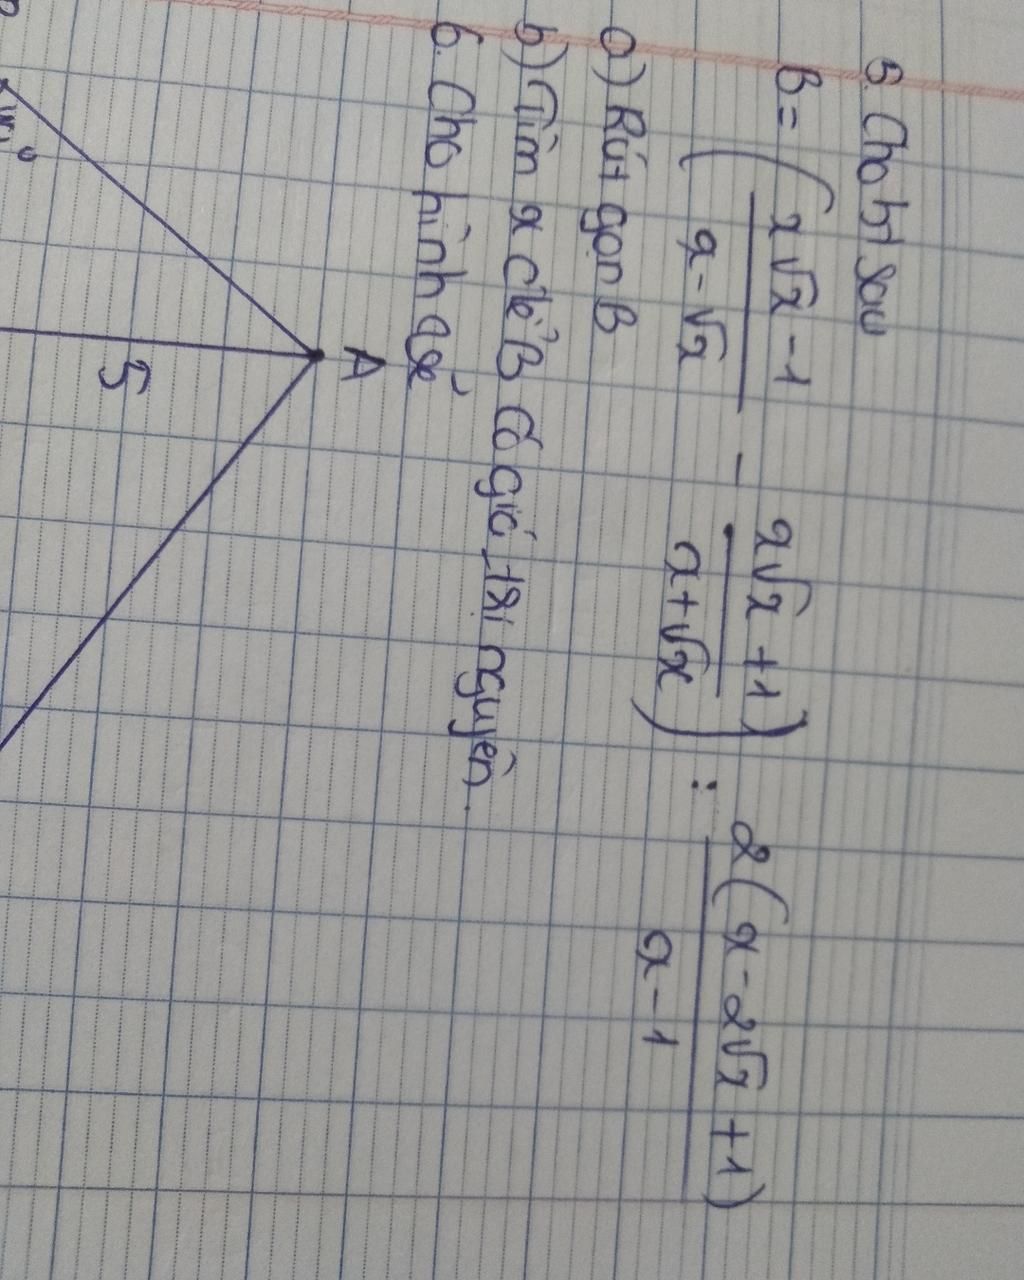 5. Cho bt sau
B = (x√x - 1 / x - √x - x√x + 1 / x + √x) : 2(x - 2√x + 1) / x - 1
a) Rút gọn B
b) Tìm x để B có giá trị nguyên.
6. Cho hình vẽ
A
5